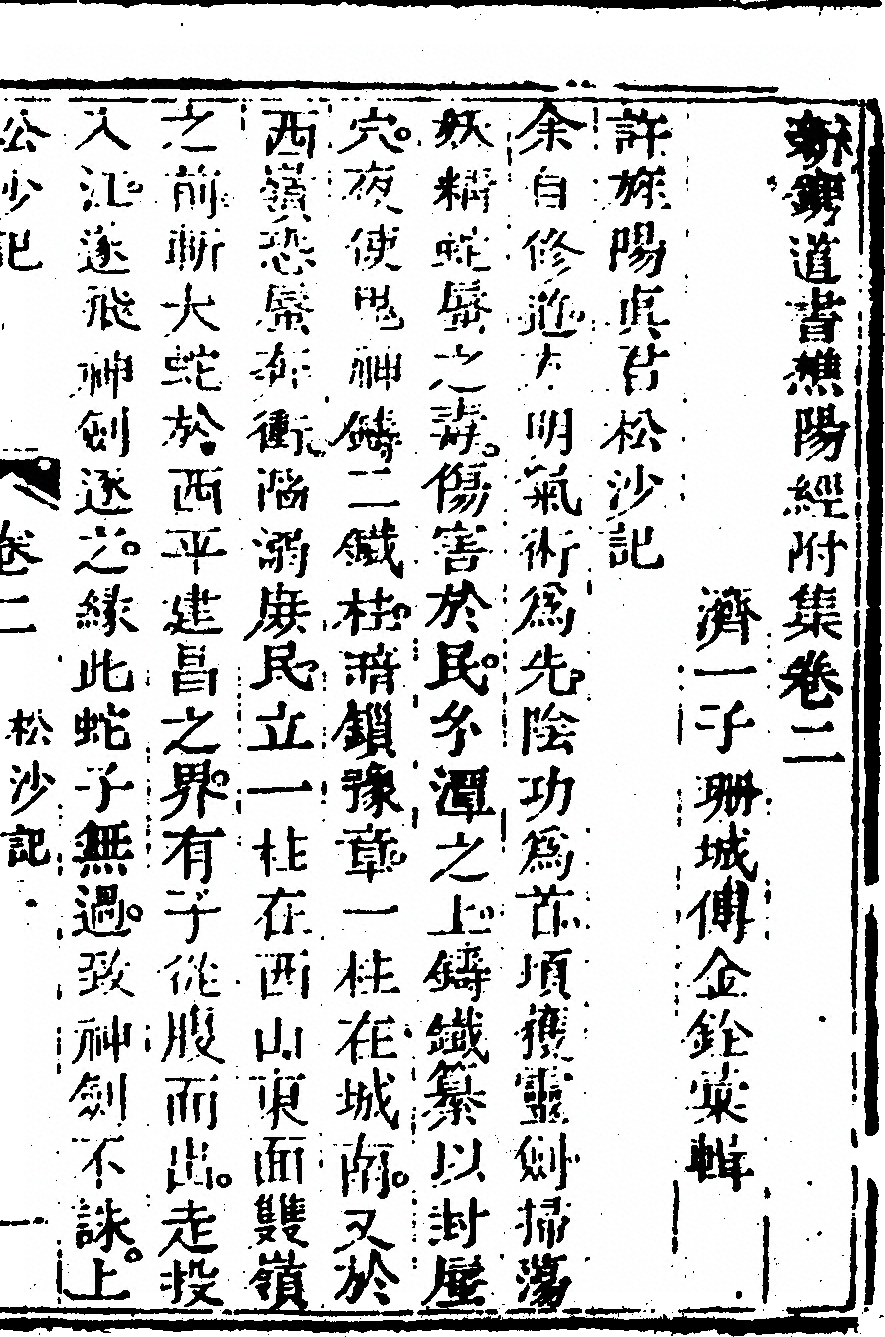 新鐫道書樵陽經附集卷二
濟一子珊城傅金銓彙輯
許旌陽真君松沙記
余自修明氣術爲先。陰功爲首。頃獲靈劍。掃蕩
妖精蛇蜃之毒。傷害於民。多潭之上。鑄鐵纂以封蜃
穴。夜使鬼神鑄二鐵柱。暗鎖豫章。一柱在城南。又於
西嶺恐蜃奔衝。陷溺庶民。立一柱在西山東面雙嶺
之前。斬大蛇於西平建昌之界。有子從腹而出。走投
入江。遂飛神劍逐之。緣此蛇子無過。致神劍不誅。上
松沙記 卷二 松沙記 一